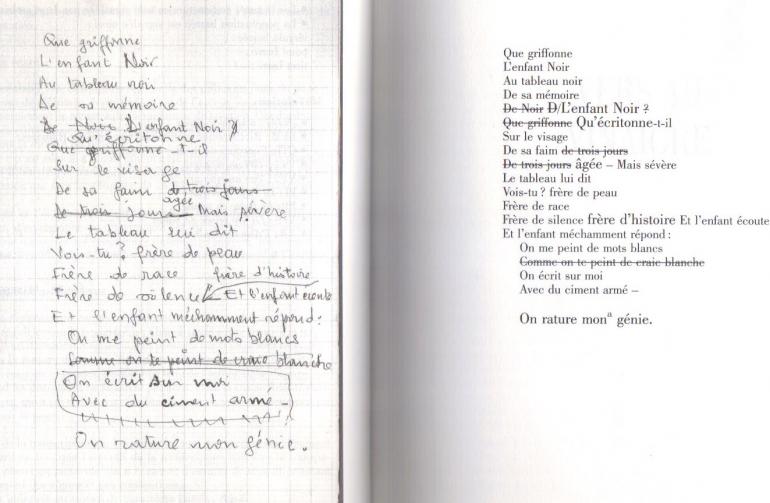 Que griffonne
L'enfant Noir
Au tableau noir
De sa mémoire
De Noir D L'enfant Noir ?
Qu'écritonne
Que griffonne -t-il
Sur le visage
De sa faim de trois jours
âgée
De trois jours – Mais sévère
Le tableau lui dit
Vois-tu ? frère de peau
Frère de race frère d'histoire
Frère de silence Et l'enfant écoute
Et l'enfant méchamment répond :
On me peint de mots blancs
Comme on te peint de craie blanche
On écrit sur moi
Avec du ciment armé –
On rature mon génie.
Que griffonne
L'enfant Noir
Au tableau noir
De sa mémoire
De Noir D/L'enfant Noir ?
Que griffonne Qu'écritonne-t-il
Sur le visage
De sa faim de trois jours
De trois jours âgée – Mais sévère
Le tableau lui dit
Vois-tu ? frère de peau
Frère de race
Frère de silence frère d'histoire Et l'enfant écoute
Et l'enfant méchamment répond :
On me peint de mots blancs
Comme on te peint de craie blanche
On écrit sur moi
Avec du ciment armé –
On rature monª génie.